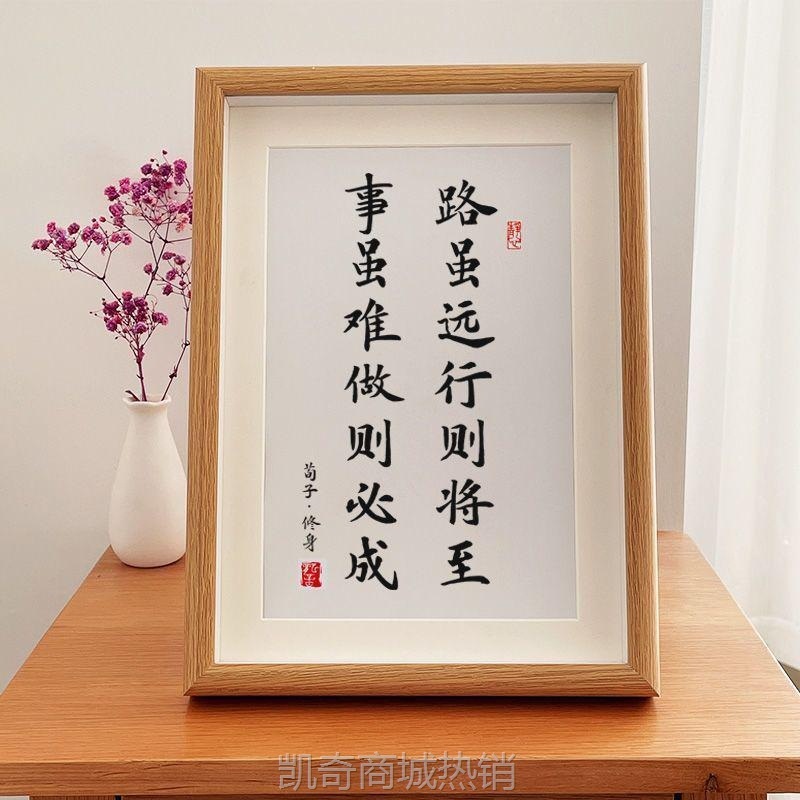 路虽远行则将至
事虽难做则必成
荀子·修身
凯奇商城热销